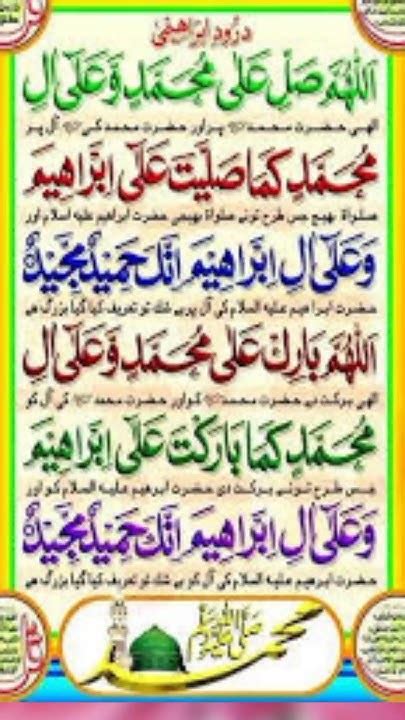 درود ابراهيمى
اَللّٰهُمَّ صَلِّ عَلٰى مُحَمَّدٍ وَّعَلٰٓى اٰلِ
الٰہی حضرت محمد ﷺ پر اور حضرت محمد ﷺ کی آل پر
مُحَمَّدٍ كَمَا صَلَّيْتَ عَلٰٓى اِبْرَاهِيْمَ
صلواۃ بھیج جس طرح تونے صلواۃ بھیجی حضرت ابراھیم علیہ السلام اور
وَعَلٰٓى اٰلِ اِبْرَاهِيْمَ اِنَّكَ حَمِيْدٌ مَّجِيْدٌ
حضرت ابراھیم علیہ السلام کی آل پر بے شک تو تعریف کیا گیا بزرگ ھے
اَللّٰهُمَّ بَارِكْ عَلٰى مُحَمَّدٍ وَّعَلٰٓى اٰلِ
الٰہی برکت دے حضرت محمد ﷺ کو اور حضرت محمد ﷺ کی آل کو
مُحَمَّدٍ كَمَا بَارَكْتَ عَلٰٓى اِبْرَاهِيْمَ
جس طرح تونے برکت دی حضرت ابرھیم علیہ السلام کو اور
وَعَلٰٓى اٰلِ اِبْرَاهِيْمَ اِنَّكَ حَمِيْدٌ مَّجِيْدٌ
حضرت ابرھیم علیہ السلام کی آل کو بے شک تو تعریف کیا گیا بزرگ ھے
محمد صلى الله عليه وسلم